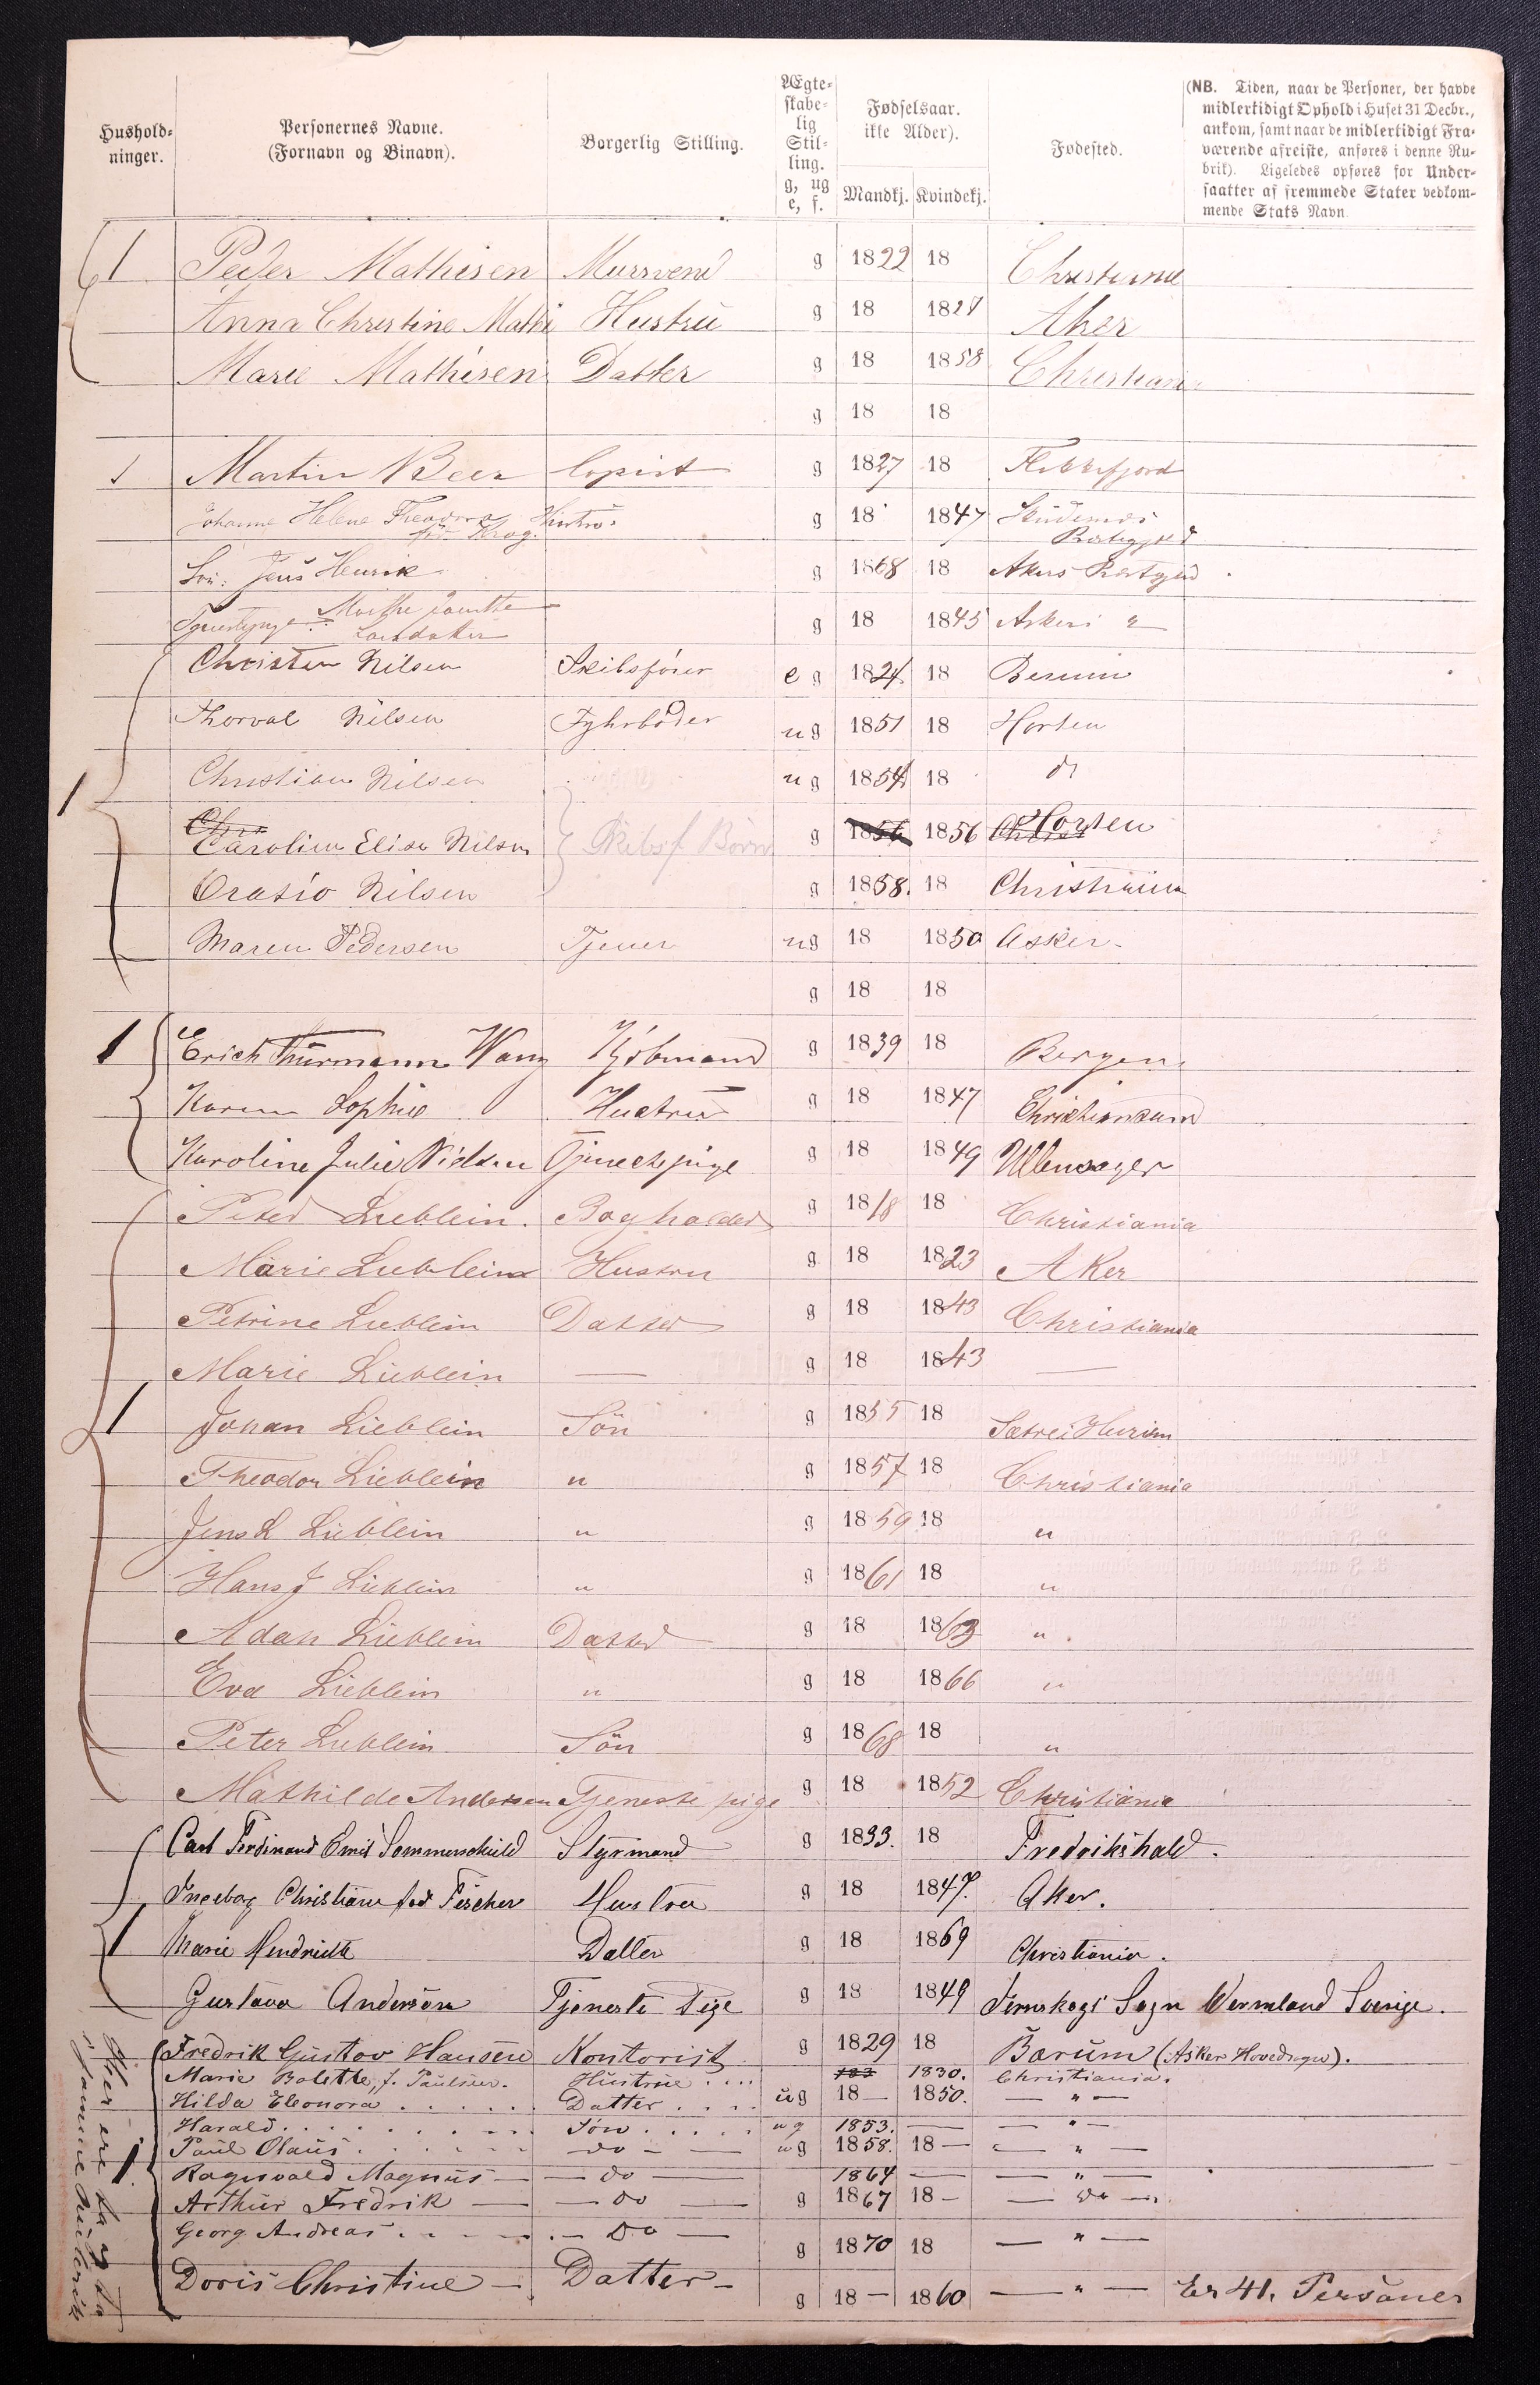 Hushold-
ninger.
Personernes Navne.
(Fornavn og Binavn).
Borgerlig Stilling.
Ægte-
skabe-
lig
Stil-
ling.
g, ug
e, f.
Fødselsaar.
ikke Alder).
Mandkj. Kvindekj.
Fødested.
(NB. Tiden, naar de Personer, der havde
midlertidigt Ophold i Huset 31 Decbr.,
ankom, samt naar de midlertidigt Fra-
værende afreiste, anføres i denne Ru-
brik). Ligeledes opføres for Under-
saatter af fremmede Stater vedkom-
mende Stats Navn.
1 Peder Mathisen Mursvend g 1822 18 Christiania
Anna Christine Mathi Hustru g 18 182 Aker
Marie Mathisen Datter g 18 1858 Christiania
g 18 18
1 Martin Beer Copist g 1827 18 Flekkefjord
Johanne Helene Theodora Hustru g 18 1847
fød Krog. Præstegjeld
Søn: Jens Henrik g 1868 18 Akers Præstgjeld
Marthe g 18 1845 Askers
Christen Nilsen Skibsfører e g 1824 18 Berum
Thorval Nilsen Fyhrbøder ug 1851 18 Horten
1 Christian Nilsen ug 1854 18 do
Chra
Caroline Elise Nilsen Skibsf Børn g 1856 1856 Horten
Orasio Nilsen g 1858. 18 Christiania
Maren Pedersen Tjener ug 18 1850 Asker.
g 18 18
1 Erich Thurmann Wang Kjøbmand g 1839 18 Bergen
Karen Sophie Hustru g 18 1847 Christiansund
Karoline Julie Nielsen Tjenestepige g 18 1849 Ullensager
Peter Lieblein. Bogholder g 1818 18 Christiania
Marie Lieblein Hustru g 18 1823 Aker
Petrine Lieblein Datter g 18 1843 Christiania
Marie Lieblein — g 18 1843 —
1 Johan Lieblein Sön g 1855 18 Sætre i Hurum
Theodor Lieblein " g 1857 18 Christiania
Jens L Lieblein " g 1859 18 "
Hans J Lieblein " g 1861 18 "
Adah Lieblein Datter g 18 1863 "
Eva Lieblein " g 18 1866 "
Peter Lieblein Sön g 1868 18 "
Mathilde Andersen Tjeneste pige g 18 1852 Christiania
Carl Ferdinand Emil Sommerschield Styrmand g 1833. 18 Fredrikshald.
Ingeborg Christiane fød Fischer Hustru g 18 1847. Aker.
1 Marie Hendriette Datter g 18 1869 Christiania.
Gustava Anderson Tjeneste Pige g 18 1849 Jernskogs Sogn Wermland Sverige.
Fredrik Gustav Hansen Kontorist g 1829 18 Bærum (Asker Hovedsogn).
Marie Bolette, f. Paulsen. Hustrue . . . 183 1830. Christiania.
Hilda Eleonora . . . . . Datter . . . . ug 18 — 1850. — " —
Harald . . . . . . . Søn . . . . . ug 1853. — — " —
Paul Olaus . . . . . . — do — — ug 1858. 18 — — " —
1 Ragnvald Magnus — — do — 1864 — — " —
Arthur Fredrik — — do — g 1867 18 — — do —
Georg Andreas . . . . . — Do — g 1870 18 — " —
Doris Christine — Datter — g 18 — 1860 — " — Er 41. Personer